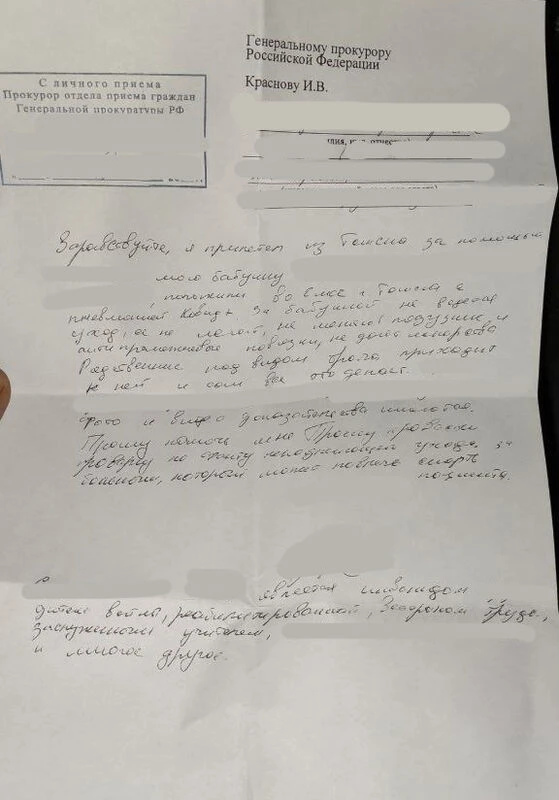 Генеральному прокурору
Российской Федерации
Краснову И.В.
С личного приема
Прокурор отдела приема граждан
Генеральной прокуратуры РФ
Здравствуйте, я прилетел из Томска за помощью
мою бабушку
положили во 2 мсч г. Томска с
пневмонией Ковид. За бабушкой не ведется
уход, ее не моют, не меняют подгузник, и
антипролежневые повязки, не дают лекарства
Родственник под видом врача приходит
к ней и сам все это делает.
Фото и видео доказательства имеются.
Прошу помочь мне Прошу провести
проверку по факту ненадлежащего ухода за
больным, который может повлечь смерть
пациента.
является инвалидом
дитем войны, реабилитированной, Ветераном труда,
заслуженным учителем,
и многое другое.